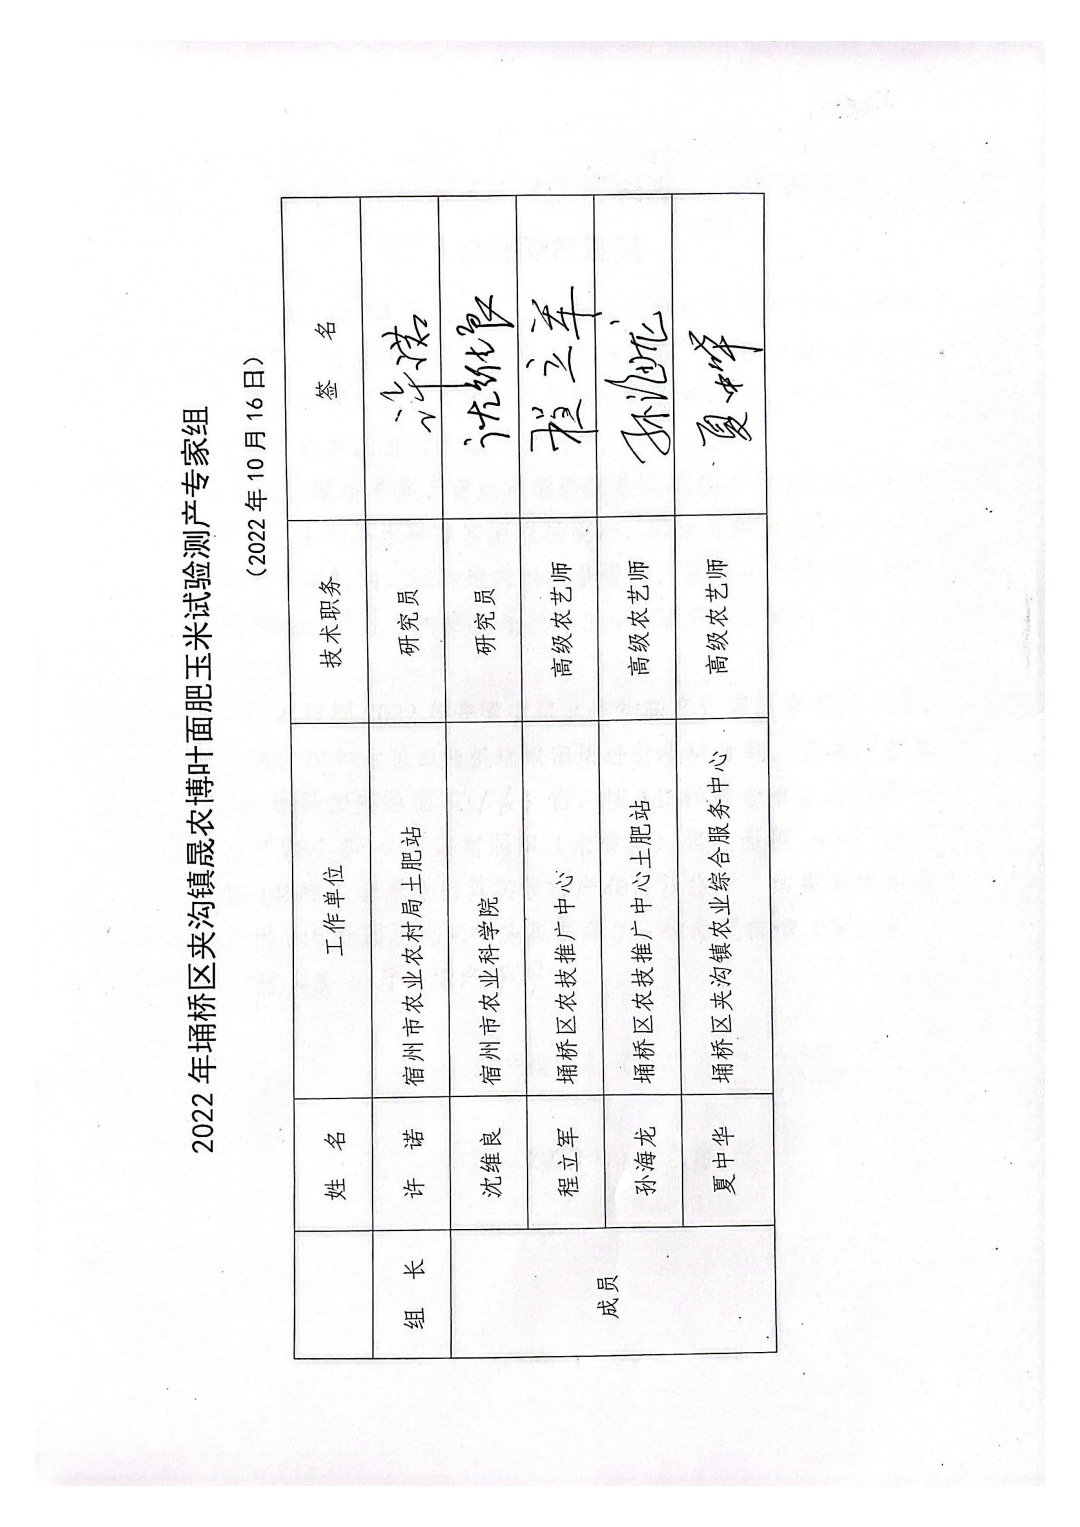 2022年埇桥区夹沟镇晟农博叶面肥玉米试验测产专家组
（2022年10月16日）
姓 名 工作单位 技术职务 签 名
组 长 许 诺 宿州市农业农村局土肥站 研究员 许诺
成员 沈维良 宿州市农业科学院 研究员 沈维良
程立军 埇桥区农技推广中心 高级农艺师 程立军
孙海龙 埇桥区农技推广中心土肥站 高级农艺师 孙海龙
夏中华 埇桥区夹沟镇农业综合服务中心 高级农艺师 夏中华